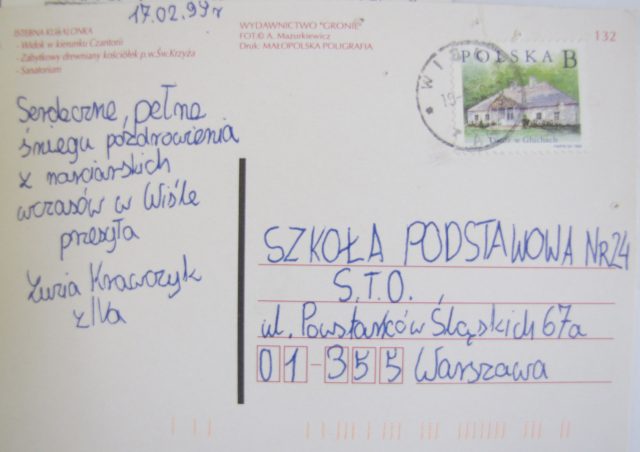 17.02.99r
ISTEBNA KUBALONKA
- Widok w kierunku Czantorii
- Zabytkowy drewniany kościółek p.w. Św. Krzyża
- Sanatorium
WYDAWNICTWO "GRONIE"
FOT.© A. Mazurkiewicz
Druk: MAŁOPOLSKA POLIGRAFIA
132
POLSKA B
Dwór w Głuchach
Serdeczne, pełne
śniegu pozdrowienia
z narciarskich
wczasów w Wiśle
przesyła
Krawczyk
SZKOŁA PODSTAWOWA Nr 24
S.T.O.,
ul. Powstańców Śląskich 67a
01-355 Warszawa